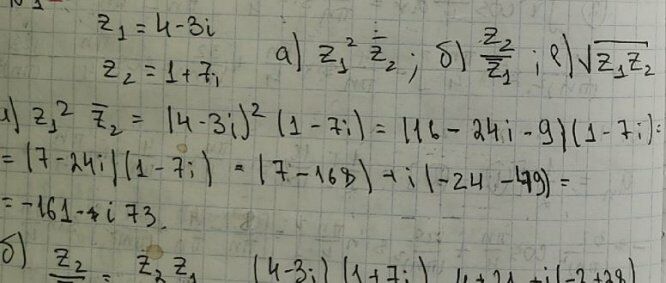 z₁ = 4-3i
z₂ = 1+7i
а) z₁² z̄₂ ; б) z₂/z̄₁ ; в) √(z₁z₂)
а) z₁² z̄₂ = (4-3i)² (1-7i) = (16-24i-9)(1-7i) =
= (7-24i)(1-7i) = (7-168) + i(-24-49) =
= -161 - i 73.
б) z₂/z̄₁ = z₂ z₁ (4-3i)(1+7i) 4+21+i(-3+28)